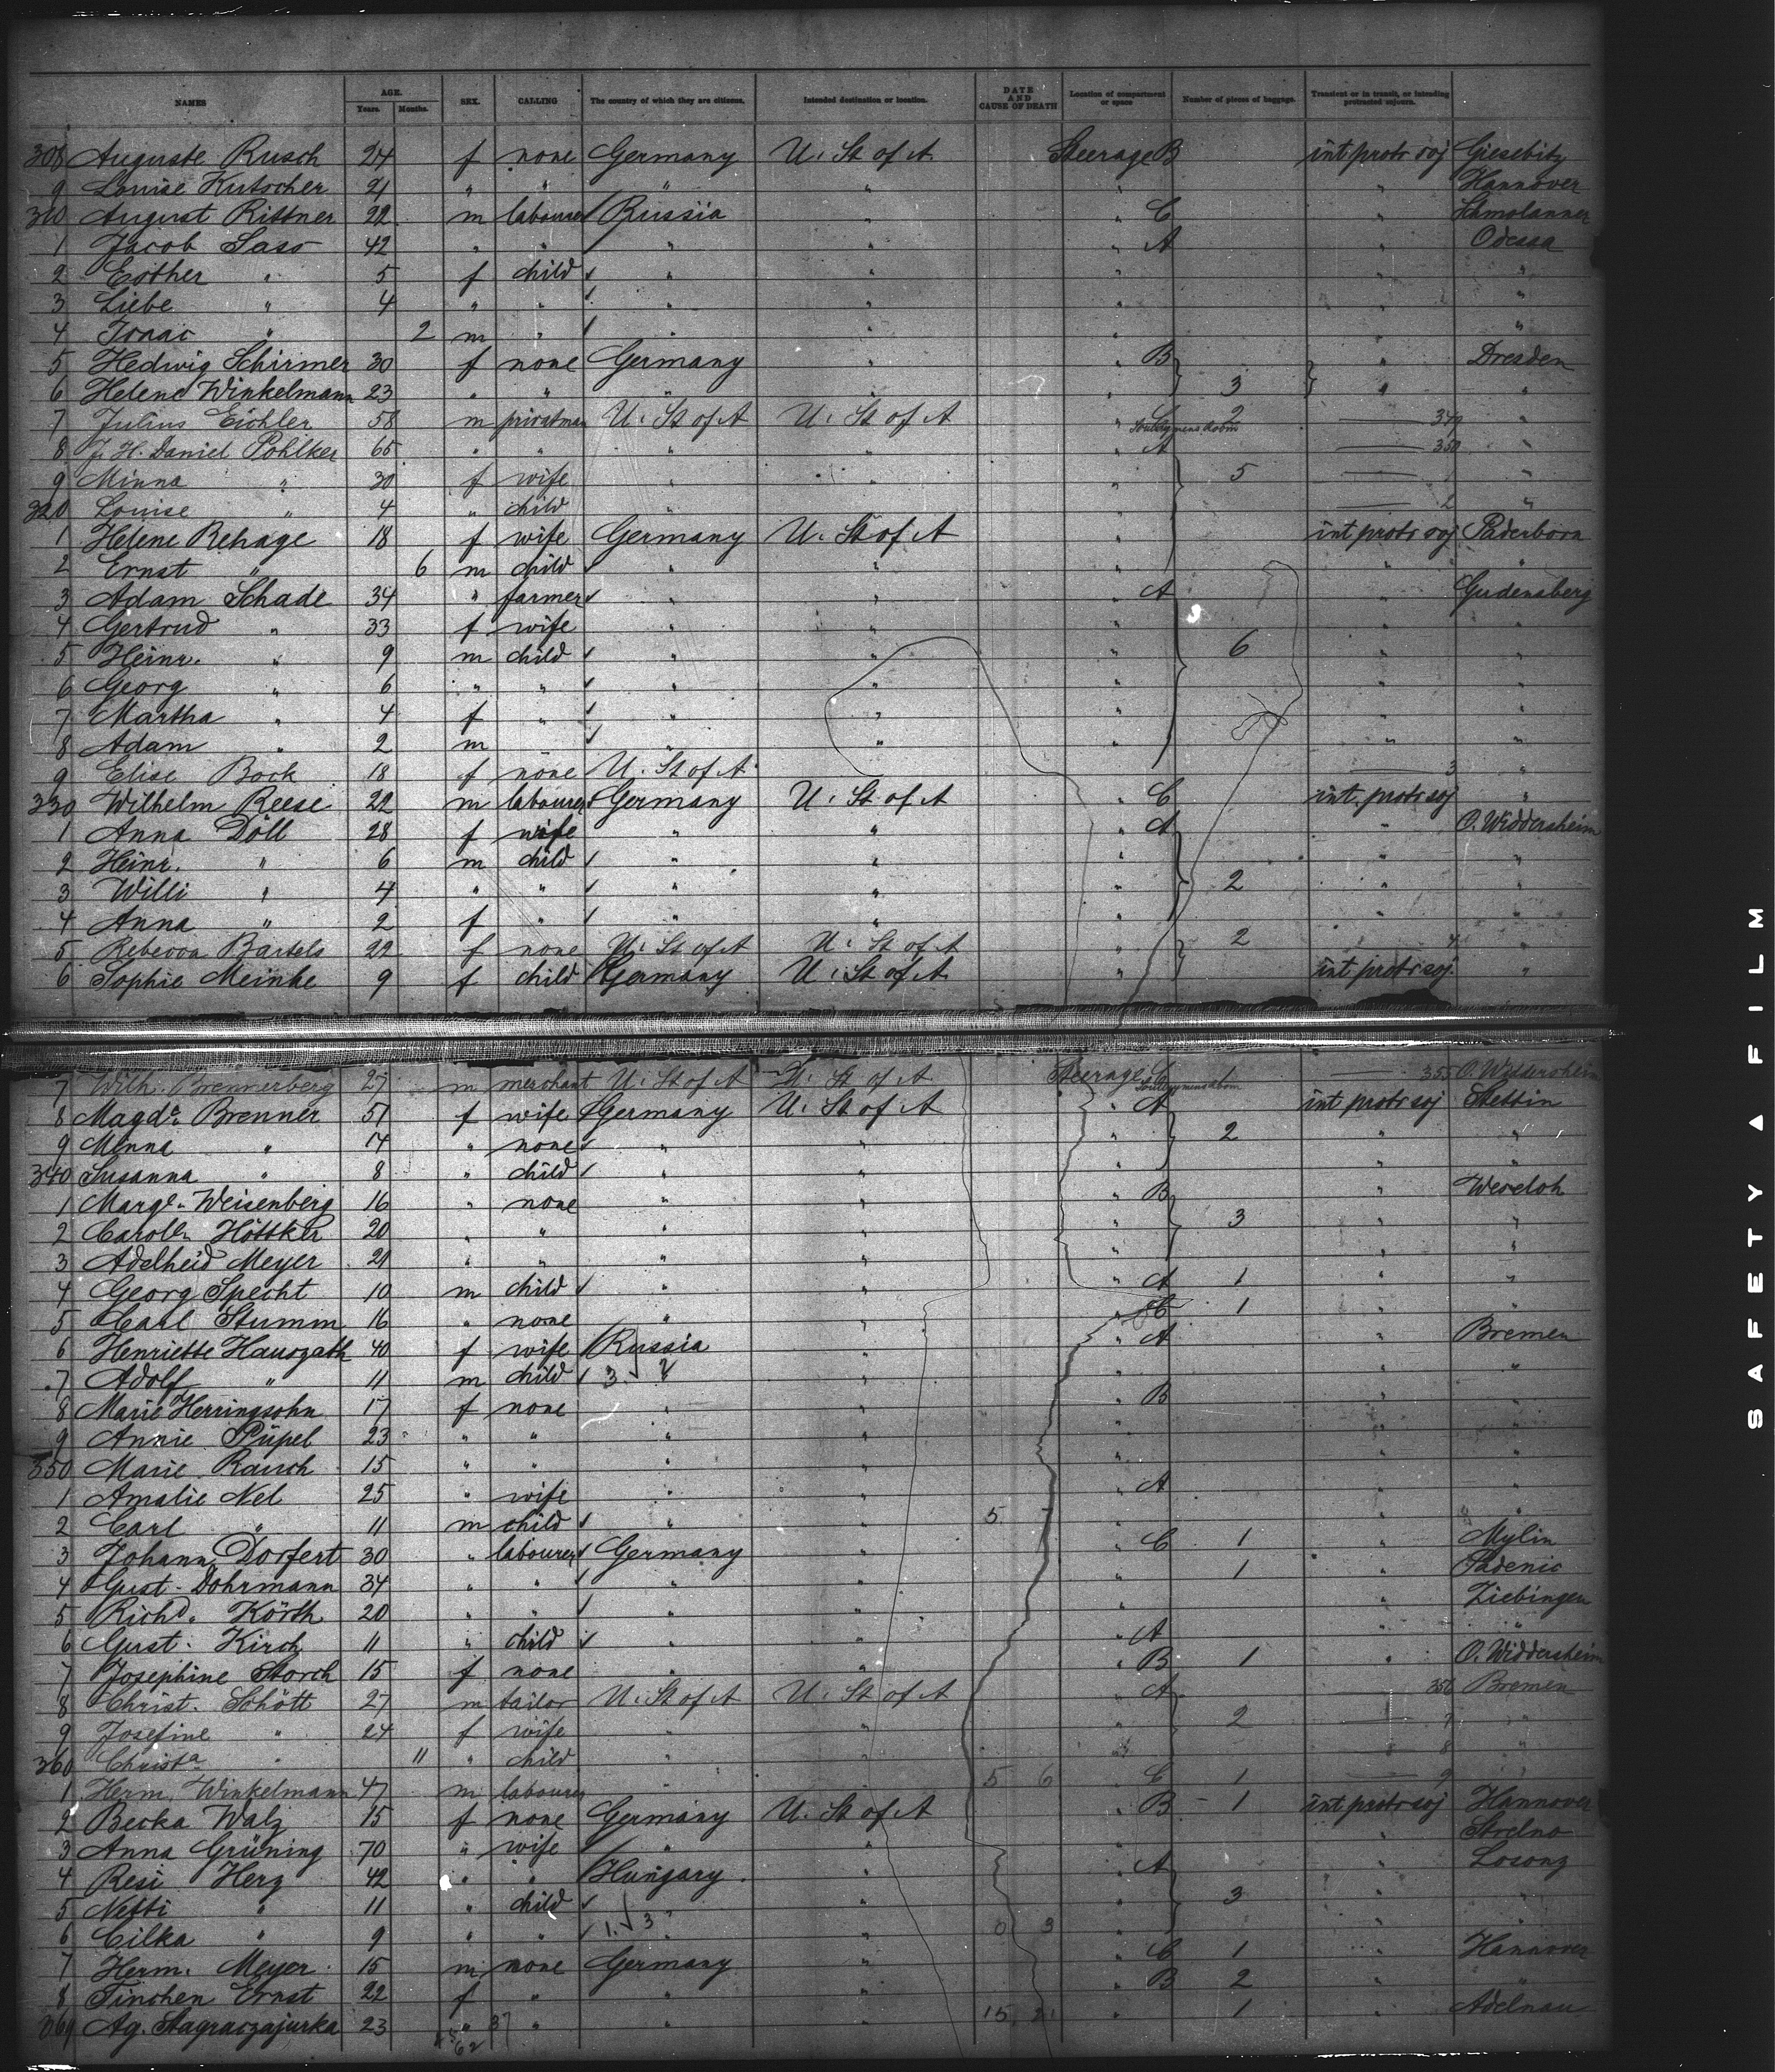 NAMES AGE. Years. Months. SEX. CALLING The country of which they are citizens. Intended destination or location. DATE AND CAUSE OF DEATH Location of compartment or space Number of pieces of baggage. Transient or in transit, or intending protracted sojourn.
308 Auguste Rusch 24 f none Germany U. St of A Steerage B int protr soj Giesebitz
9 Louise Kutscher 21 " " " " " " Hannover
310 August Rittner 22 m labourer Russia " " C "
1 Jacob Saso 42 " " " " " A " Odessa
2 Esther " 5 f child " " " " "
3 Liebe " 4 " " " " " "
4 Isaac " 2 m " " " " "
5 Hedwig Schirmer 30 f none Germany " " B " Dresden
6 Helene Winkelmann 23 " " " " " 3 " "
7 Julius Eichler 58 m U. St of A U. St of A " C 2 349 "
8 J. H. Daniel Pohlker 65 " " " " " A 350 "
9 Minna " 30 f wife " " " 5 1 "
320 Louise " 4 " child " " 2 "
1 Helene Rehage 18 f wife Germany U. St of A " int protr soj Paderborn
2 Ernst " 6 m child " " " " "
3 Adam Schade 34 " farmer " " " A " Gudensberg
4 Gertrud " 33 f wife " " " " "
5 Heinr. " 9 m child " " " 6 " "
6 Georg " 6 " " " " " " "
7 Martha " 4 f " " " " " "
8 Adam " 2 m " " " " "
9 Elise Bock 18 f none U. St of A 3 "
330 Wilhelm Reese 22 m labourer Germany U. St of A " C int. protr soj "
1 Anna Döll 28 f wife " " " A " O. Widdersheim
2 Heinr. " 6 m child " " " " "
3 Willi " 4 " " " " " 2 " "
4 Anna " 2 f " " " " " "
5 Rebecca Bartels 22 f none U. St of A U. St of A " 2 4 "
6 Sophie Meinke 9 f child Germany U. St of A " int protr soj "
7 Wilh. Brennerberg 27 m merchant U. St of A U. St of A Steerage C 1 355 O. Widdersheim
8 Magde. Brenner 51 f wife Germany U. St of A " A int protr soj Stettin
9 Minna " 14 " none " " " 2 " "
340 Susanna " 8 " child " " " " "
1 Margr. Weisenberg 16 " none " " " B " Wereloh
2 Caroln Höttker 20 " " " " " 3 " "
3 Adelheid Meyer 21 " " " " " " "
4 Georg Specht 10 m child " " " A 1 " "
5 Carl Stumm 16 " none " " " C 1 " "
6 Henriette Hauszath 40 f wife Russia " " A " Bremen
7 Adolf " 11 m child 3 " " " "
8 Marie Herringsohn 17 f none " " " B " "
9 Annie Püpel 23 " " " " " " "
350 Marie Rausch 15 " " " " " " "
1 Amalie Nel 25 " wife " " " A " "
2 Carl " 11 m child " " 5 " " "
3 Johann Dorfert 30 " labourer Germany " " C 1 " Mylin
4 Gust. Dohrmann 34 " " " " " 1 " Padenic
5 Richd. Körth 20 " " " " " " Ziebingen
6 Gust. Kirch 11 " child " " " A " "
7 Josephine Storch 15 f none " " " B 1 " O. Widdersheim
8 Christ. Schött 27 m tailor U. St of A U. St of A " A 356 Bremen
9 Josefine " 24 f wife " " " 2 7 "
360 Christa " 11 " child " " " 8 "
1 Herm. Winkelmann 47 m labourer " " 5 6 C 1 9
2 Becka Walz 15 f none Germany U. St of A " B 1 int protr soj Hannover
3 Anna Grüning 70 " wife " " " " Strelno
4 Resi Herz 42 " " Hungary " " A " Losonz
5 Netti " 11 " child " " 3 " "
6 Cilka " 9 " " 1. 3 " 0 3 " " "
7 Herm. Meyer 15 m none Germany " " C 1 " Hannover
8 Tinchen Ernst 22 f " " " " B 2 " "
369 Ag. Stagraczajurka 23 " " " " 15 21 " 1 " Adelnau
37
62
SAFETY ▲ FILM